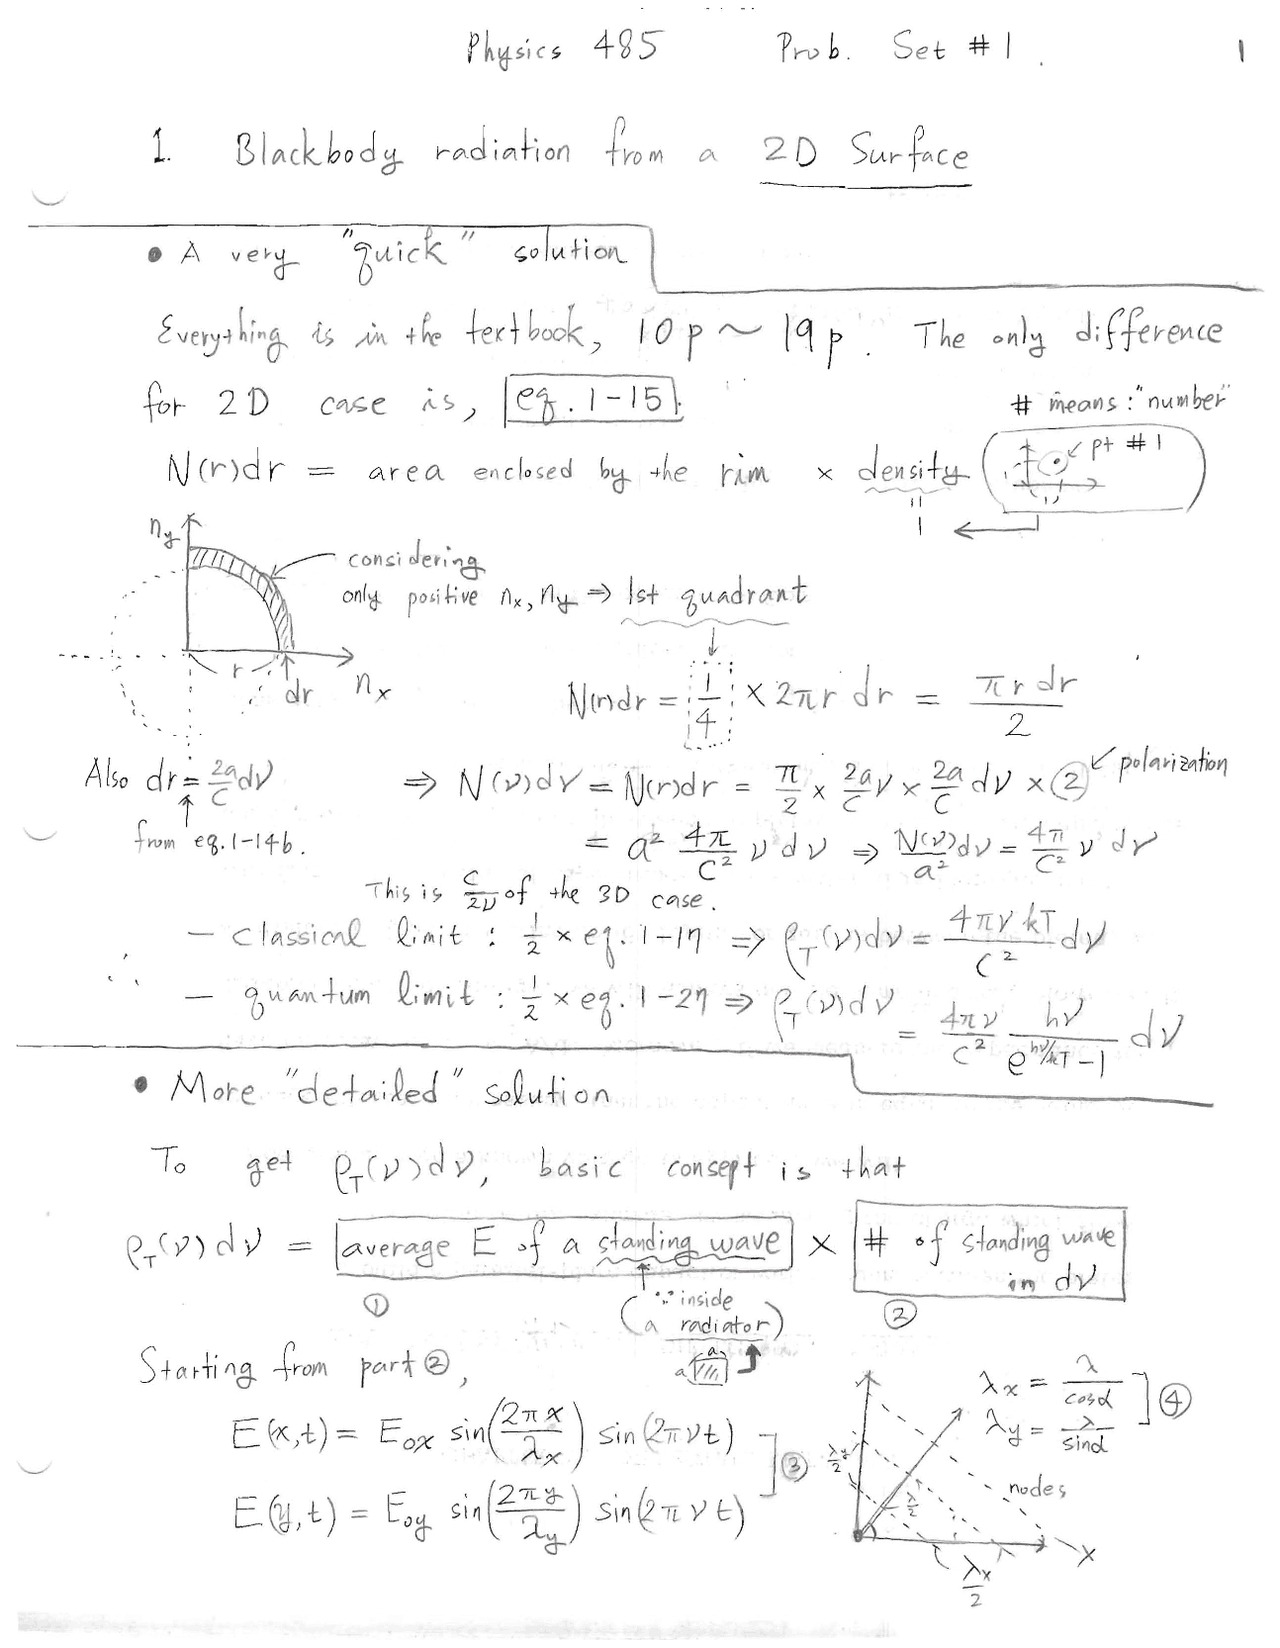 Physics 485 Prob. Set #1. 1
1. Blackbody radiation from a 2D Surface
• A very "quick" solution
Everything is in the textbook, 10p ~ 19p. The only difference
for 2D case is, eq. 1-15.
# means: "number"
N(r)dr = area enclosed by the rim × density
pt #1
"
1
n_y
considering
only positive n_x, n_y ⇒ 1st quadrant
r
dr
n_x
N(r)dr = 1/4 × 2πr dr = πr dr / 2
Also dr = 2a/c dν ⇒ N(ν)dν = N(r)dr = π/2 × 2a/c ν × 2a/c dν × 2 polarization
from eq. 1-14b.
= a² 4π/c² ν dν ⇒ N(ν)/a² dν = 4π/c² ν dν
This is c/2ν of the 3D case.
∴ - classical limit : 1/2 × eq. 1-17 ⇒ ρ_T(ν)dν = 4πνkT/c² dν
- quantum limit : 1/2 × eq. 1-27 ⇒ ρ_T(ν)dν = 4πν/c² hν/(e^{hν/kT}-1) dν
• More "detailed" solution
To get ρ_T(ν)dν, basic consept is that
ρ_T(ν)dν = average E of a standing wave × # of standing wave in dν
① ②
(∵ inside
a radiator)
a
a
Starting from part ②,
E(x,t) = E_ox sin(2πx/λ_x) sin(2πνt)
E(y,t) = E_oy sin(2πy/λ_y) sin(2πνt)
③
λ_x = λ/cosα
λ_y = λ/sinα
④
λ_y/2
λ/2
nodes
x
λ_x/2